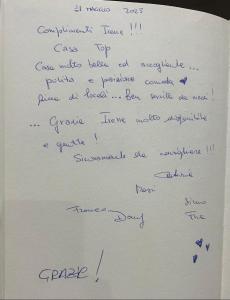 31 MAGGIO 2023
Complimenti Irene !!!
Casa Top
Casa molto bella ed accogliente...
pulita e posizione comoda
piena di locali... Ben servita da mezzi!
... Grazie Irene molto disponibile
e gentile!
Sicuramente da consigliare!!!
GRAZIE!